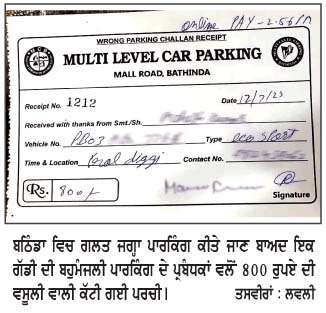 online PAY-2.55 Pm
WRONG PARKING CHALLAN RECEIPT
MULTI LEVEL CAR PARKING
MALL ROAD, BATHINDA
Receipt No. 1212 Date 12/7/23
Received with thanks from Smt./Sh.
Vehicle No. PB03 Type eco sport
Time & Location Contact No.
Rs. 800/-
Signature
ਬਠਿੰਡਾ ਵਿਚ ਗਲਤ ਜਗ੍ਹਾ ਪਾਰਕਿੰਗ ਕੀਤੇ ਜਾਣ ਬਾਅਦ ਇਕ
ਗੱਡੀ ਦੀ ਬਹੁਮੰਜਲੀ ਪਾਰਕਿੰਗ ਦੇ ਪ੍ਰਬੰਧਕਾਂ ਵਲੋਂ 800 ਰੁਪਏ ਦੀ
ਵਸੂਲੀ ਵਾਲੀ ਕੱਟੀ ਗਈ ਪਰਚੀ। ਤਸਵੀਰਾਂ : ਲਵਲੀ